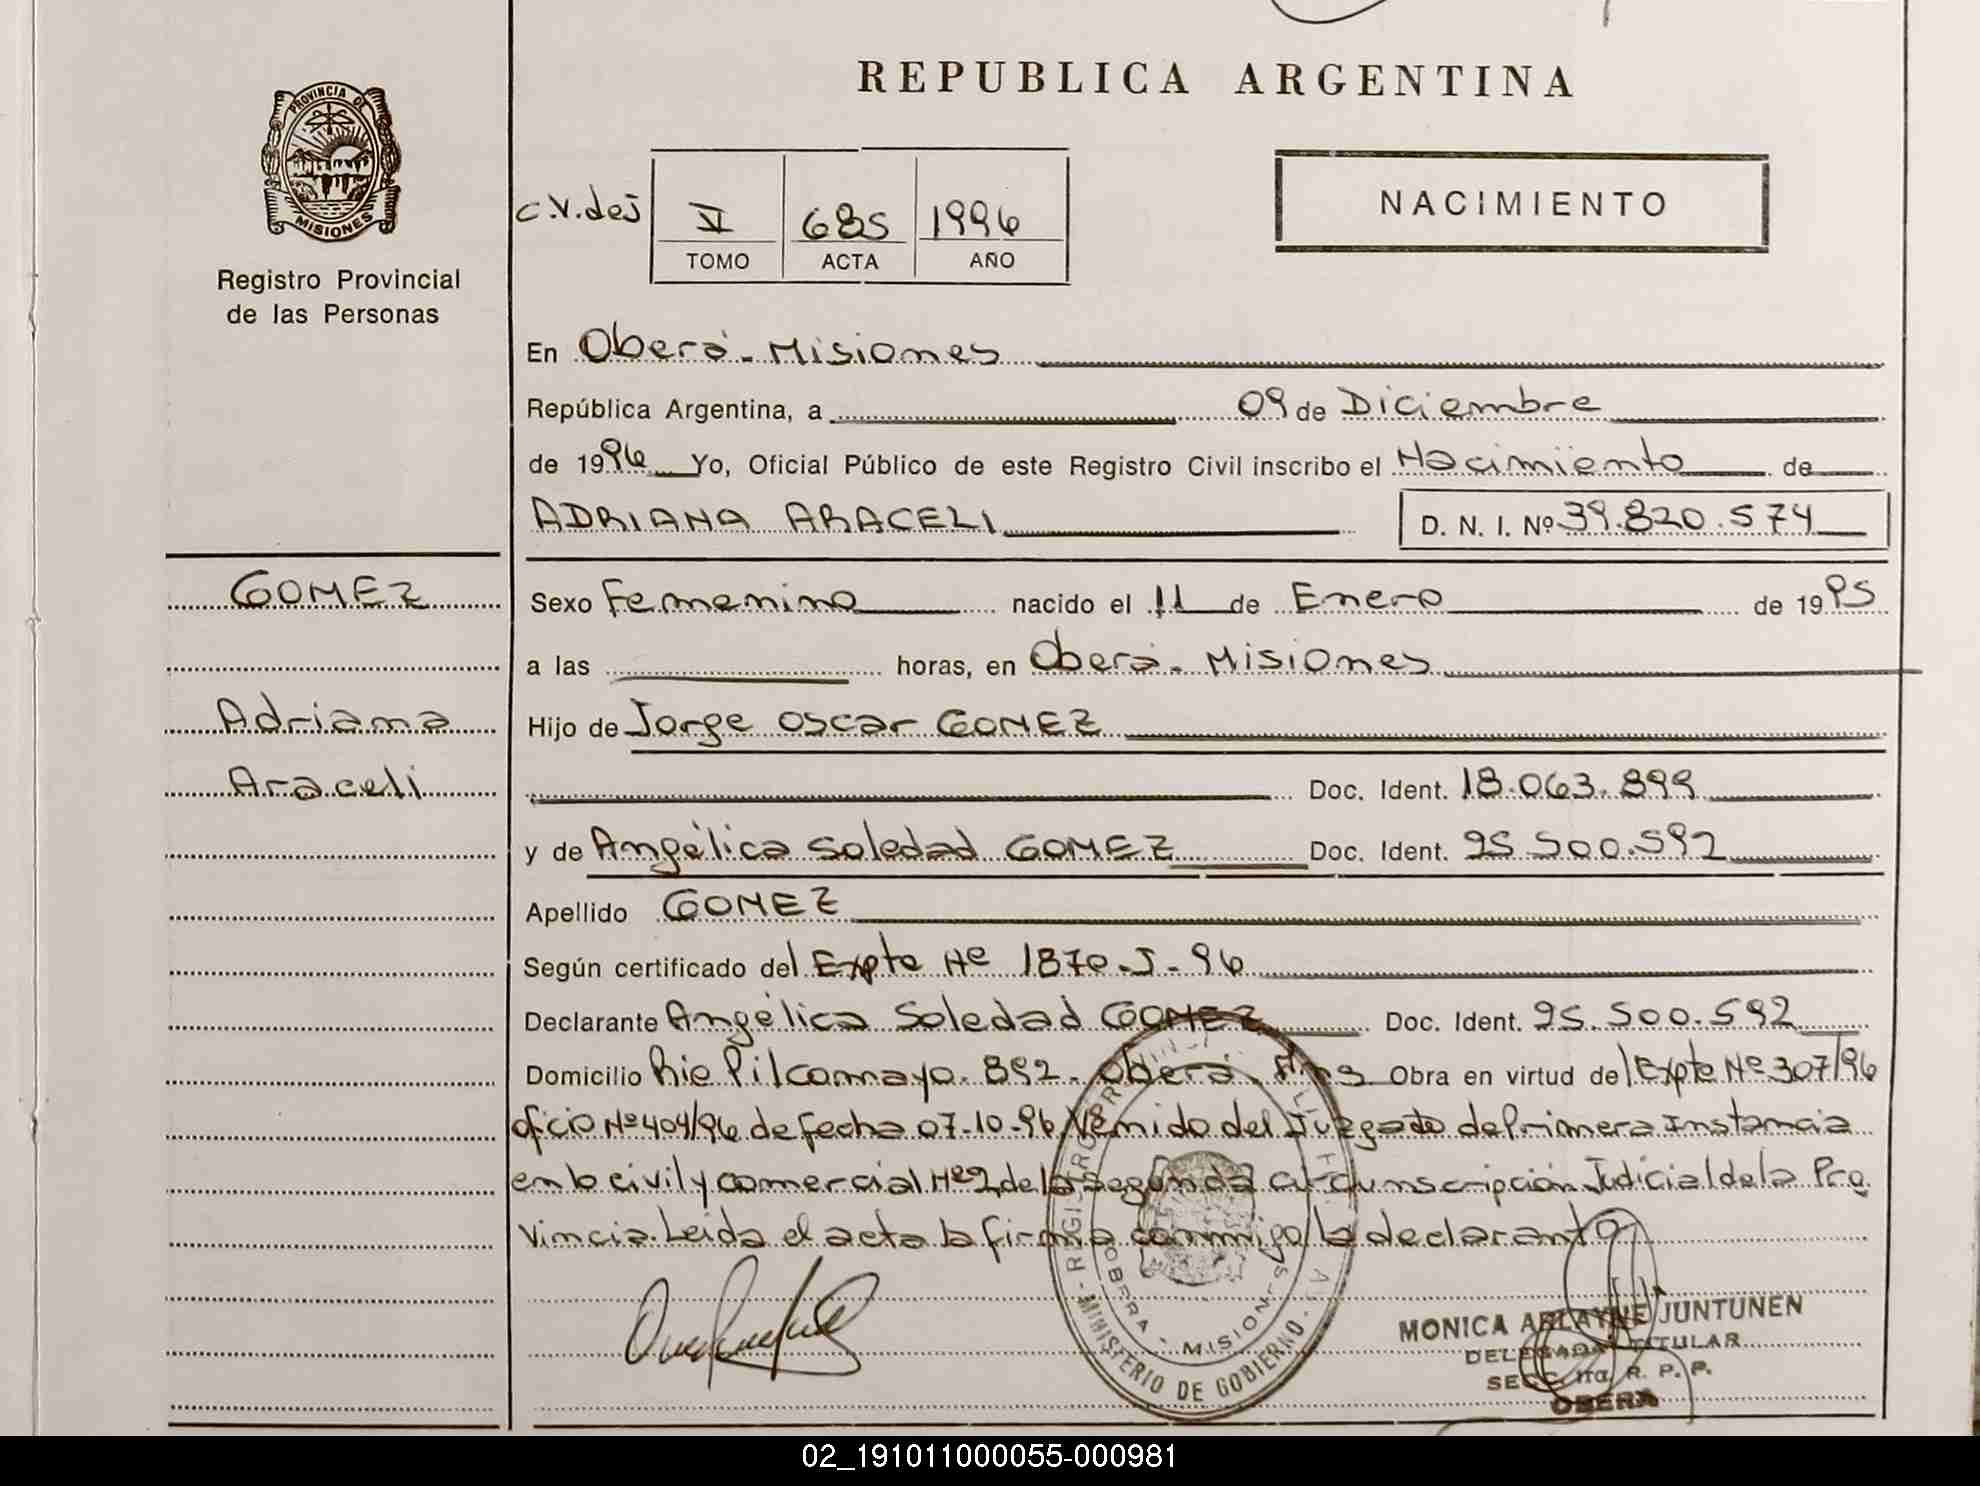 REPUBLICA ARGENTINA
PROVINCIA DE
MISIONES
Registro Provincial
de las Personas
NACIMIENTO
C.V.dej
VI 685 1996
TOMO ACTA AÑO
En Oberá - Misiones
República Argentina, a 09 de Diciembre
de 1996 Yo, Oficial Público de este Registro Civil inscribo el Nacimiento de
ADRIANA ARACELI D. N. I. Nº 39.820.574
GOMEZ
Adriana
Araceli
Sexo Femenino nacido el 11 de Enero de 1995
a las horas, en Oberá - Misiones
Hijo de Jorge Oscar GOMEZ
Doc. Ident. 18.063.899
y de Angélica Soledad GOMEZ Doc. Ident. 95.500.592
Apellido GOMEZ
Según certificado del Expte Nº 1870-J-96
Declarante Angélica Soledad GOMEZ Doc. Ident. 95.500.592
Domicilio Rio Pilcomayo 892 - Oberá, Mns Obra en virtud del Expte Nº 307/96
oficio Nº 404/96 de fecha 07-10-96 Venido del Juzgado de Primera Instancia
en lo civil y comercial Nº 2 de la Segunda circunscripción Judicial de la Pro
vincia. Leida el acta la firma conmigo la declarante
MINISTERIO DE GOBIERNO
OBERA - MISIONES
MONICA ARLAYNE JUNTUNEN
DELEGADA TITULAR
SECC. 1ra. R. P. P.
OBERA
02_191011000055-000981